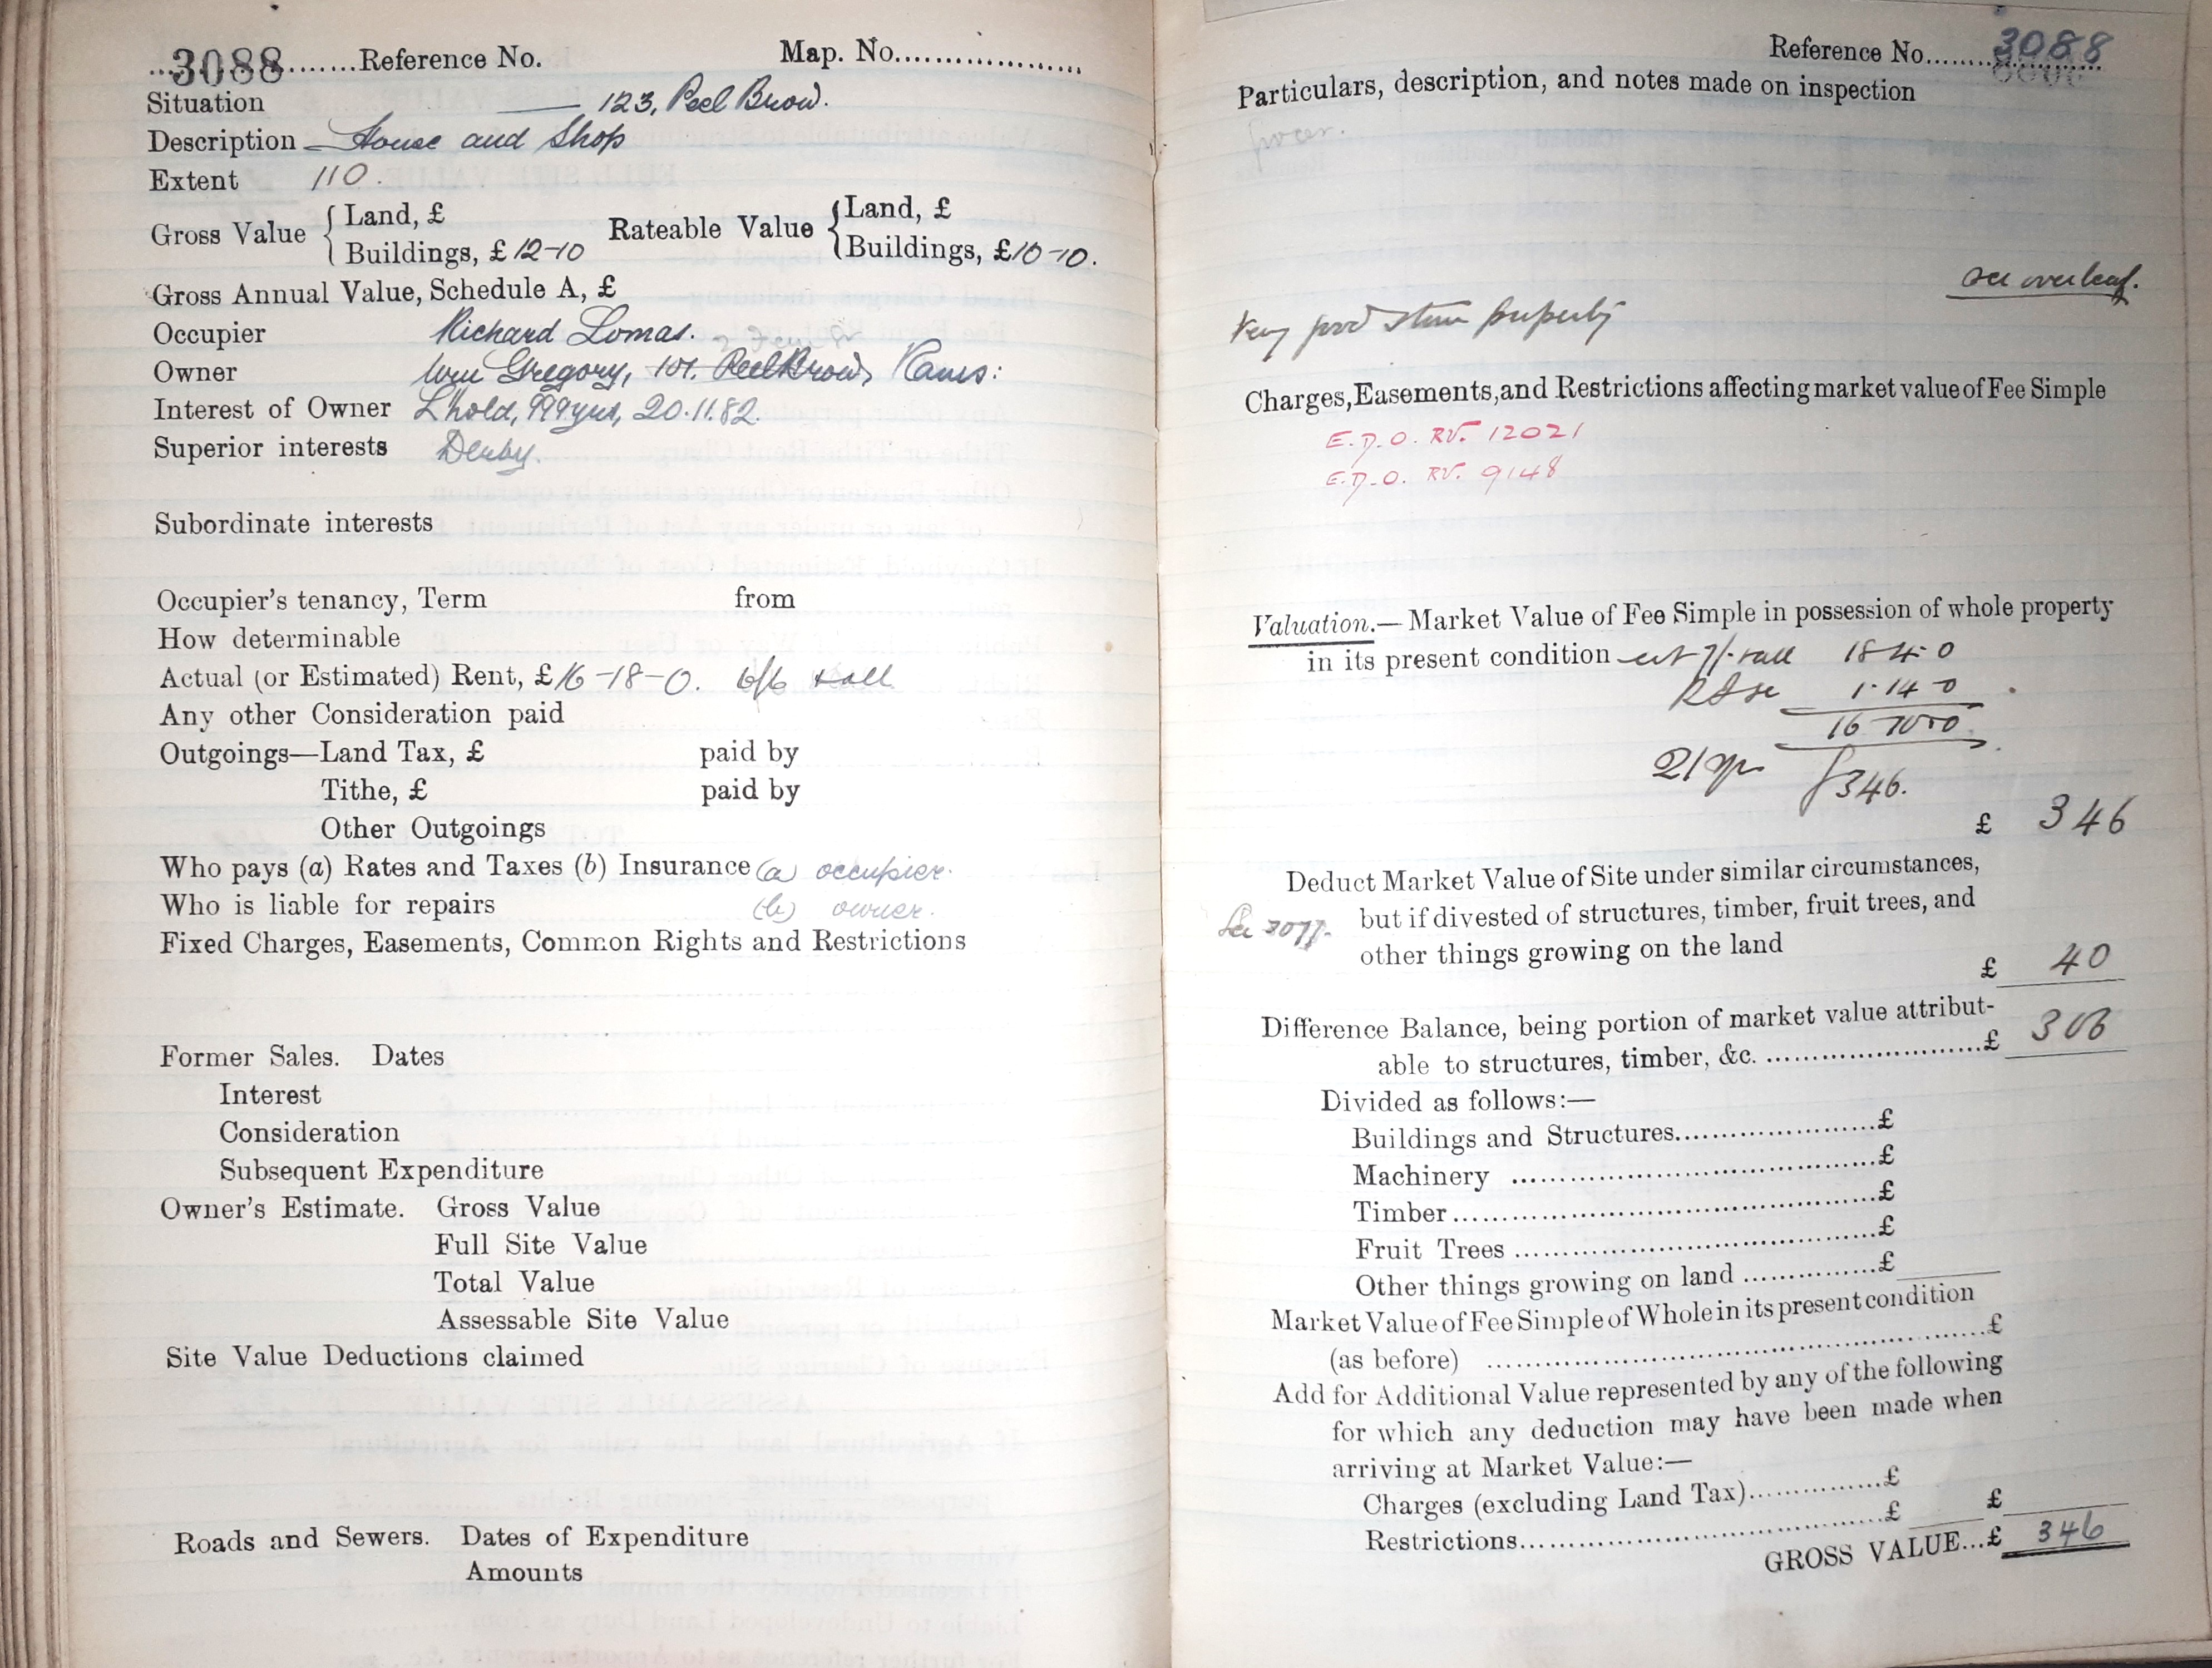 3088 Reference No. Map. No.
Situation — 123, Peel Brow.
Description House and Shop
Extent 110.
Gross Value { Land, £ Rateable Value { Land, £
Buildings, £ 12-10 Buildings, £10-10.
Gross Annual Value, Schedule A, £
Occupier Richard Lomas.
Owner Wm Gregory, 101. Peel Brow, Rams:
Interest of Owner L'hold, 999yrs, 20.11.82.
Superior interests Derby.
Subordinate interests
Occupier's tenancy, Term from
How determinable
Actual (or Estimated) Rent, £16-18-0. 6/6
Any other Consideration paid
Outgoings—Land Tax, £ paid by
Tithe, £ paid by
Other Outgoings
Who pays (a) Rates and Taxes (b) Insurance (a) occupier.
Who is liable for repairs (b) owner.
Fixed Charges, Easements, Common Rights and Restrictions
Former Sales. Dates
Interest
Consideration
Subsequent Expenditure
Owner's Estimate. Gross Value
Full Site Value
Total Value
Assessable Site Value
Site Value Deductions claimed
Roads and Sewers. Dates of Expenditure
Amounts
Reference No. 3088
Particulars, description, and notes made on inspection
Grocer.
see overleaf.
Very good stone property
Charges, Easements, and Restrictions affecting market value of Fee Simple
E.D.O. RV. 12021
E.D.O. RV. 9148
Valuation.— Market Value of Fee Simple in possession of whole property
in its present condition est 7/- 18 4-0
1-14-0
16 10-0
21 yrs £346.
£ 346
Deduct Market Value of Site under similar circumstances,
See 3077. but if divested of structures, timber, fruit trees, and
other things growing on the land
£ 40
Difference Balance, being portion of market value attribut-
able to structures, timber, &c. £ 306
Divided as follows:—
Buildings and Structures £
Machinery £
Timber £
Fruit Trees £
Other things growing on land £
Market Value of Fee Simple of Whole in its present condition
(as before) £
Add for Additional Value represented by any of the following
for which any deduction may have been made when
arriving at Market Value:—
Charges (excluding Land Tax) £
Restrictions £ £
GROSS VALUE...£ 346